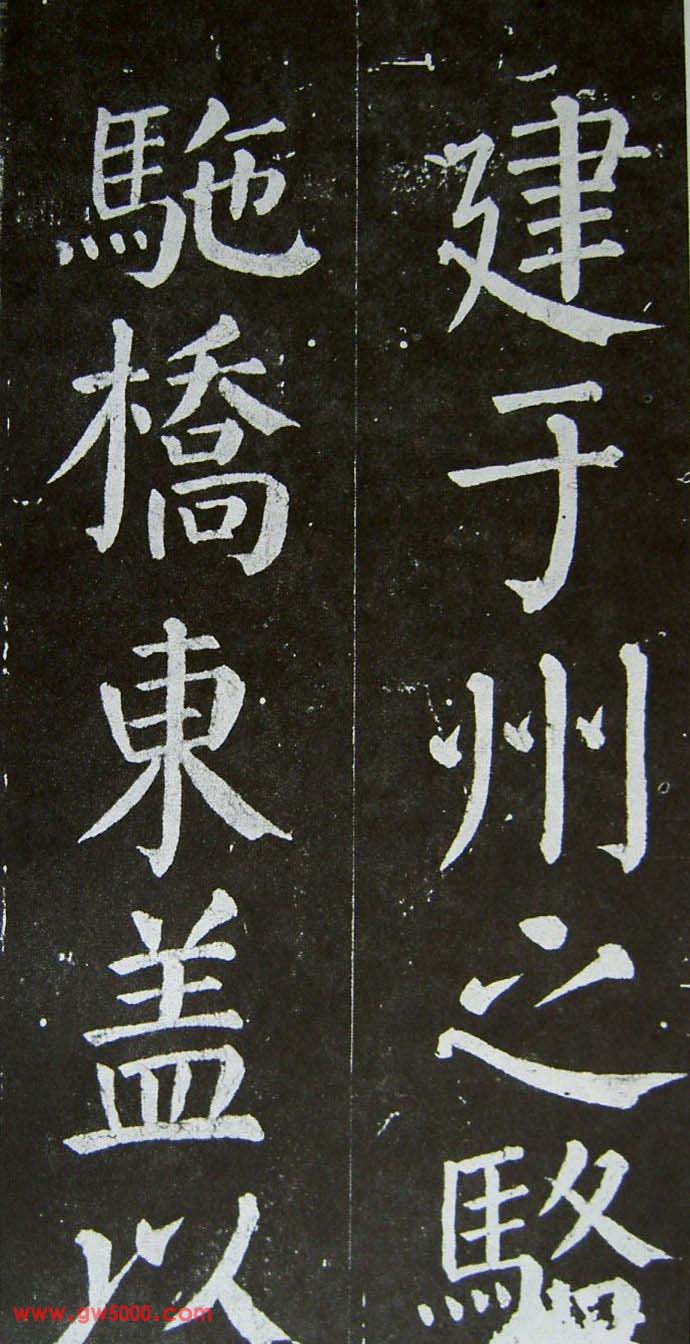 建于州之駱
駞橋東盖以
www.gw5000.com